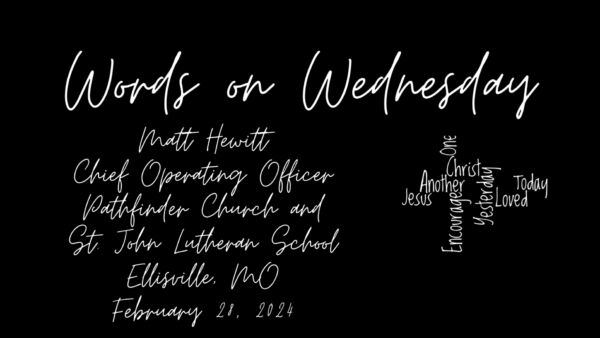 Words on Wednesday
Matt Hewitt
Chief Operating Officer
Pathfinder Church and
St. John Lutheran School
Ellisville, MO
February 28, 2024
One
Christ
Another
Today
Jesus
Loved
Encourage
Yesterday